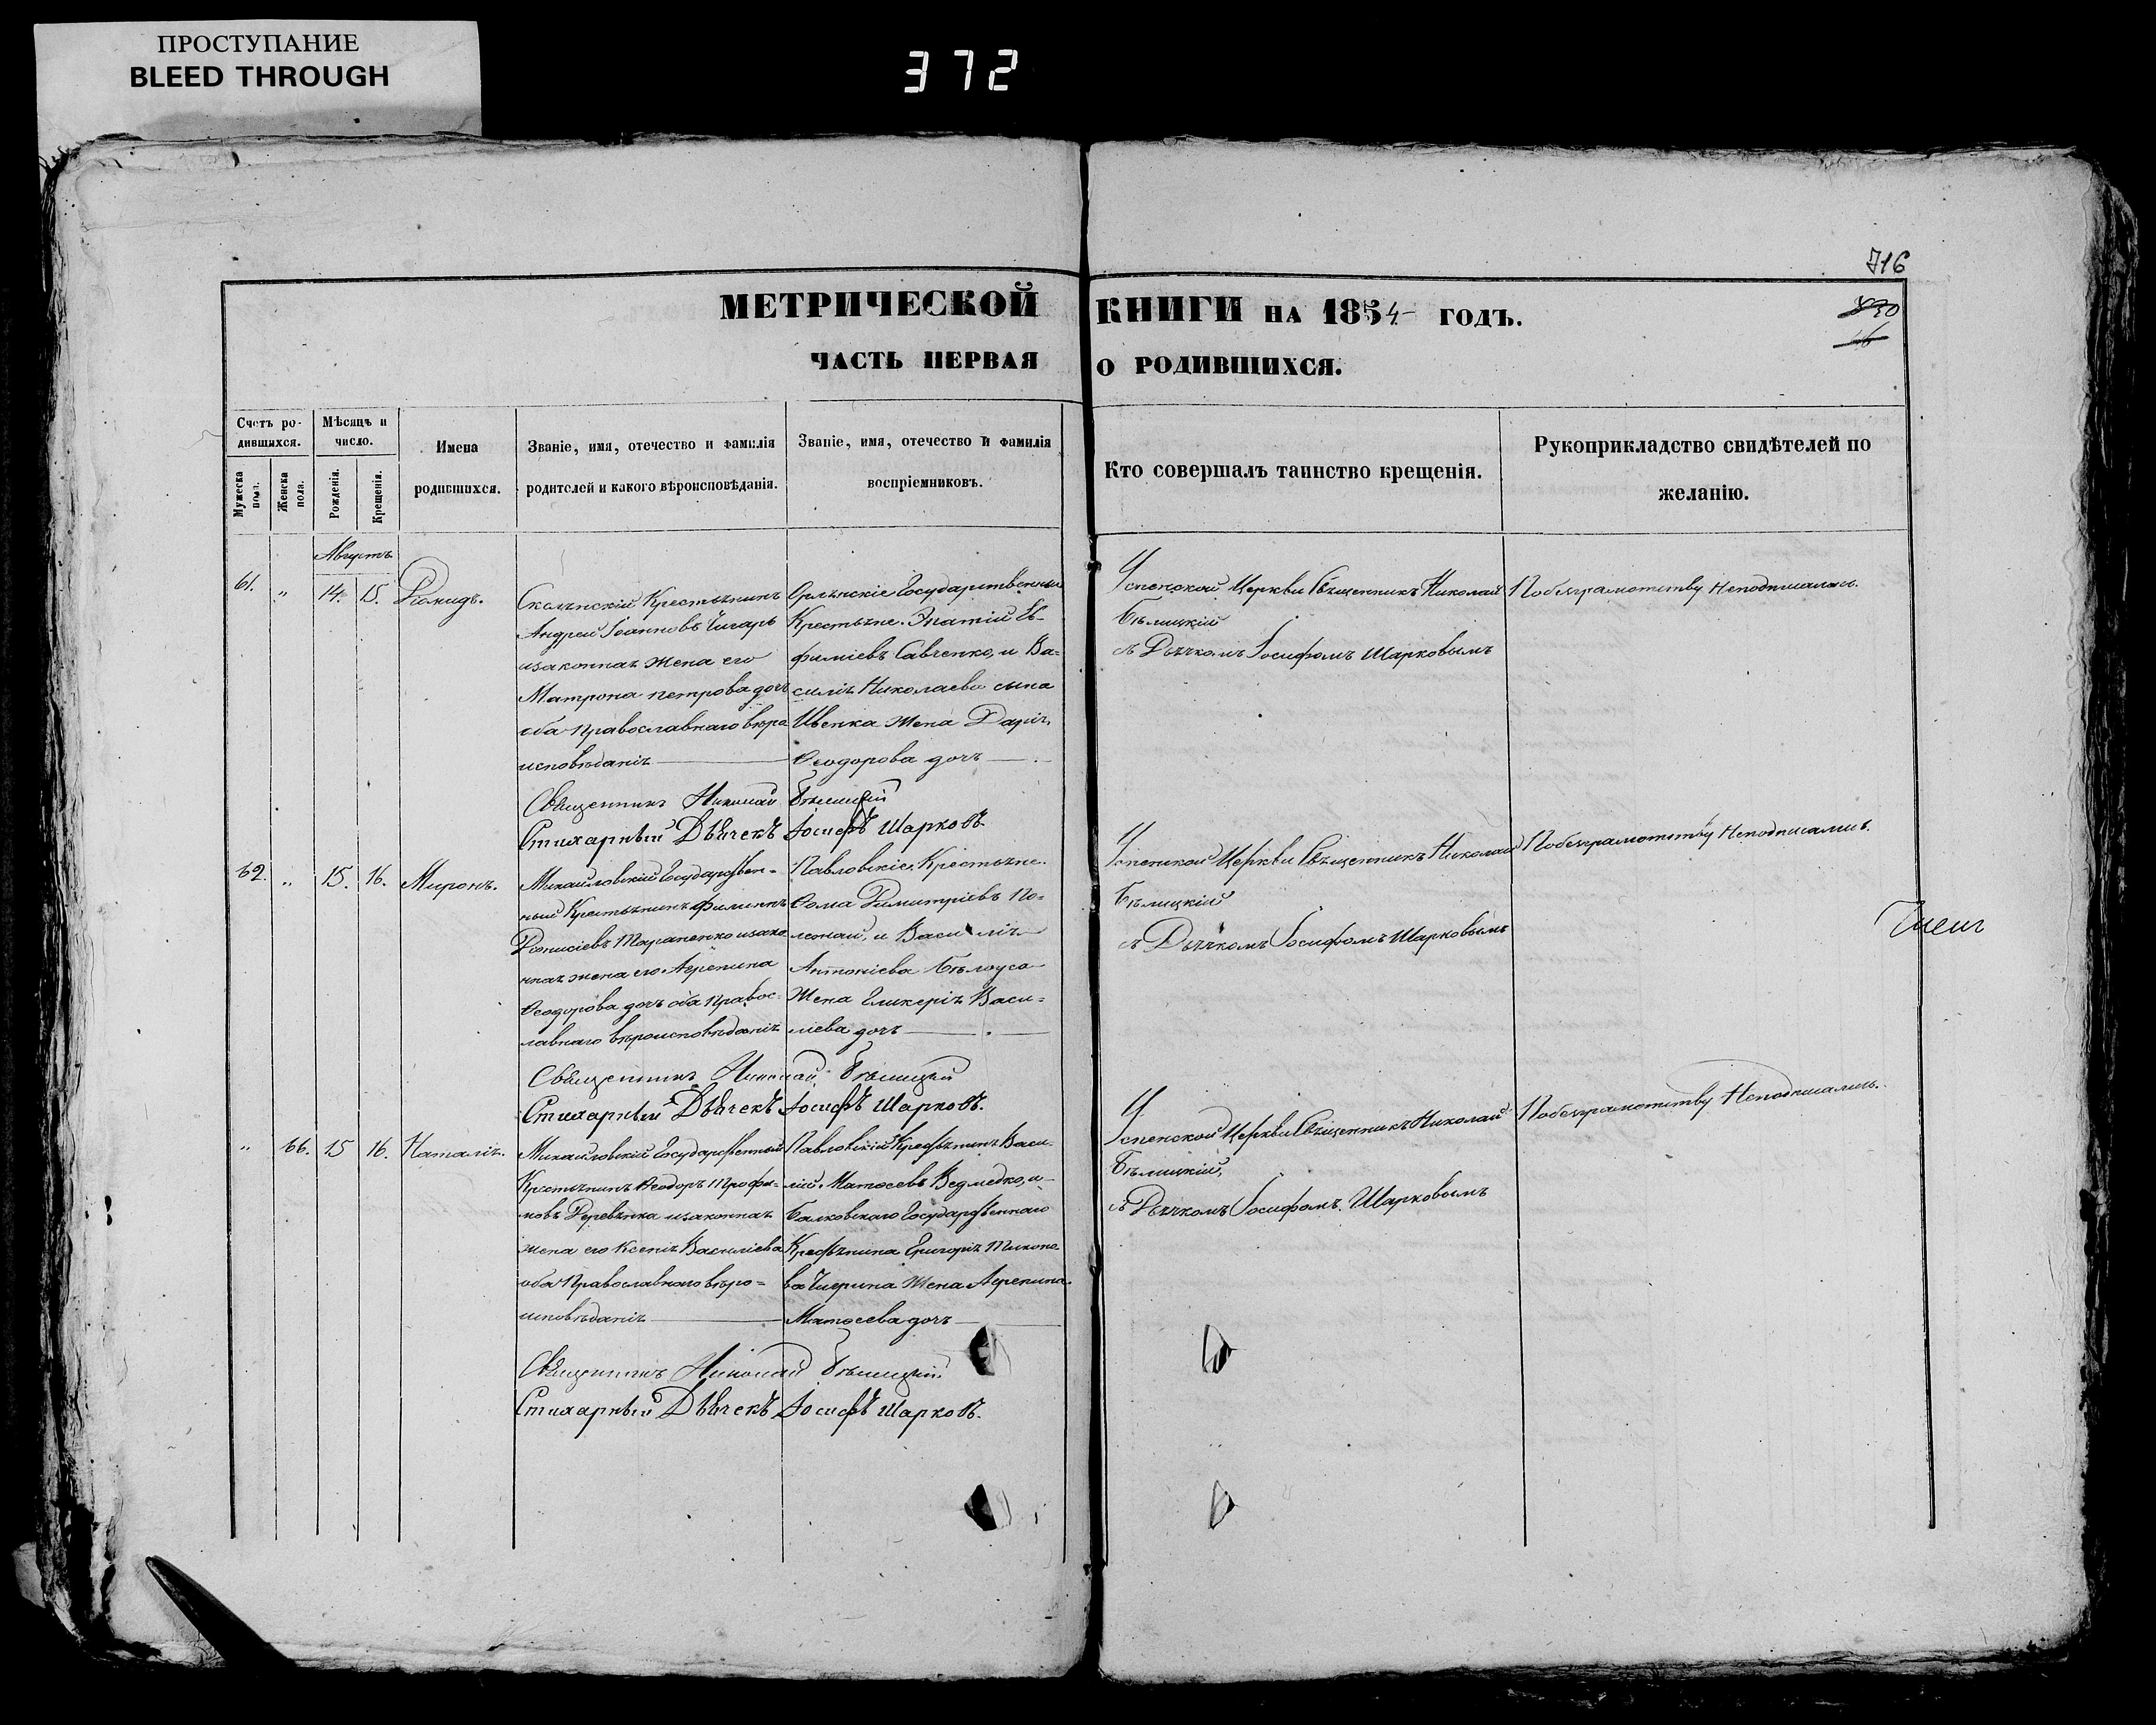 ПРОСТУПАНИЕ
BLEED THROUGH
372
716
МЕТРИЧЕСКОЙ КНИГИ НА 1854 ГОДЪ.
830
ЧАСТЬ ПЕРВАЯ О РОДИВШИХСЯ.
Счетъ родившихся.
Мужеска пола.
Женска пола.
Мѣсяцъ и число.
Рожденія.
Крещенія.
Имена родившихся.
Званіе, имя, отечество и фамилія
родителей и какого вѣроисповѣданія.
Званіе, имя, отечество и фамилія
воспріемниковъ.
Кто совершалъ таинство крещенія.
Рукоприкладство свидѣтелей по
желанію.
Августъ
61. " 14. 15. Диомидъ.
Крестьянинъ
Андрей Іоанновъ Чигарь
изаконная жена его
Матрона петрова дочь
оба православнаго вѣро
исповѣданія
Орлянскіе Государственные
Крестьяне. Игнатій Ев-
фиміевъ Савченко, и Ва-
силія Николаева сына
Ивенка жена Дарія
Ѳеодорова дочь
Успенской Церкви Священникъ Николай
Бѣлицкій
съ Дьячкомъ Іосифомъ Шарковымъ
Побезграмотству Неподписались.
Священникъ Николай Бѣлицкій
Стихарный Дьячекъ Іосифъ Шарковъ.
62. " 15. 16. Миронъ.
Михайловскій Государствен-
ный Крестьянинъ Филиппъ
Діонисіевъ Тараненко изако
нная жена его Агрепина
Ѳеодорова дочь оба Правос-
лавнаго вѣроисповѣданія
Павловскіе Крестьяне.
Ѳома Димитріевъ По-
и Василія
Антоніева Бѣлоуса
Жена Гликерія Васи-
ліева дочь
Успенской Церкви Священникъ Николай
Бѣлицкій
съ Дьячкомъ Іосифомъ Шарковымъ
Побезграмотству Неподписались.
Священникъ Николай Бѣлицкій
Стихарный Дьячекъ Іосифъ Шарковъ.
" 66. 15 16. Наталія.
Михайловскій Государственный
Крестьянинъ Ѳеодоръ Трофи-
мовъ Деревянка изаконная
жена его Ксенія Василіева
оба Православнаго вѣро-
исповѣданія
Павловскій Крестьянинъ Васи-
лій Матѳеевъ Ведмедко, и
Балковскаго Государственнаго
Крестьянина Григорія Тихоно-
ва Чигрина Жена Агрепина
Матѳеева дочь
Успенской Церкви Священникъ Николай
Бѣлицкій,
съ Дьячкомъ Іосифомъ Шарковымъ
Побезграмотству Неподписались.
Священникъ Николай Бѣлицкій
Стихарный Дьячекъ Іосифъ Шарковъ.